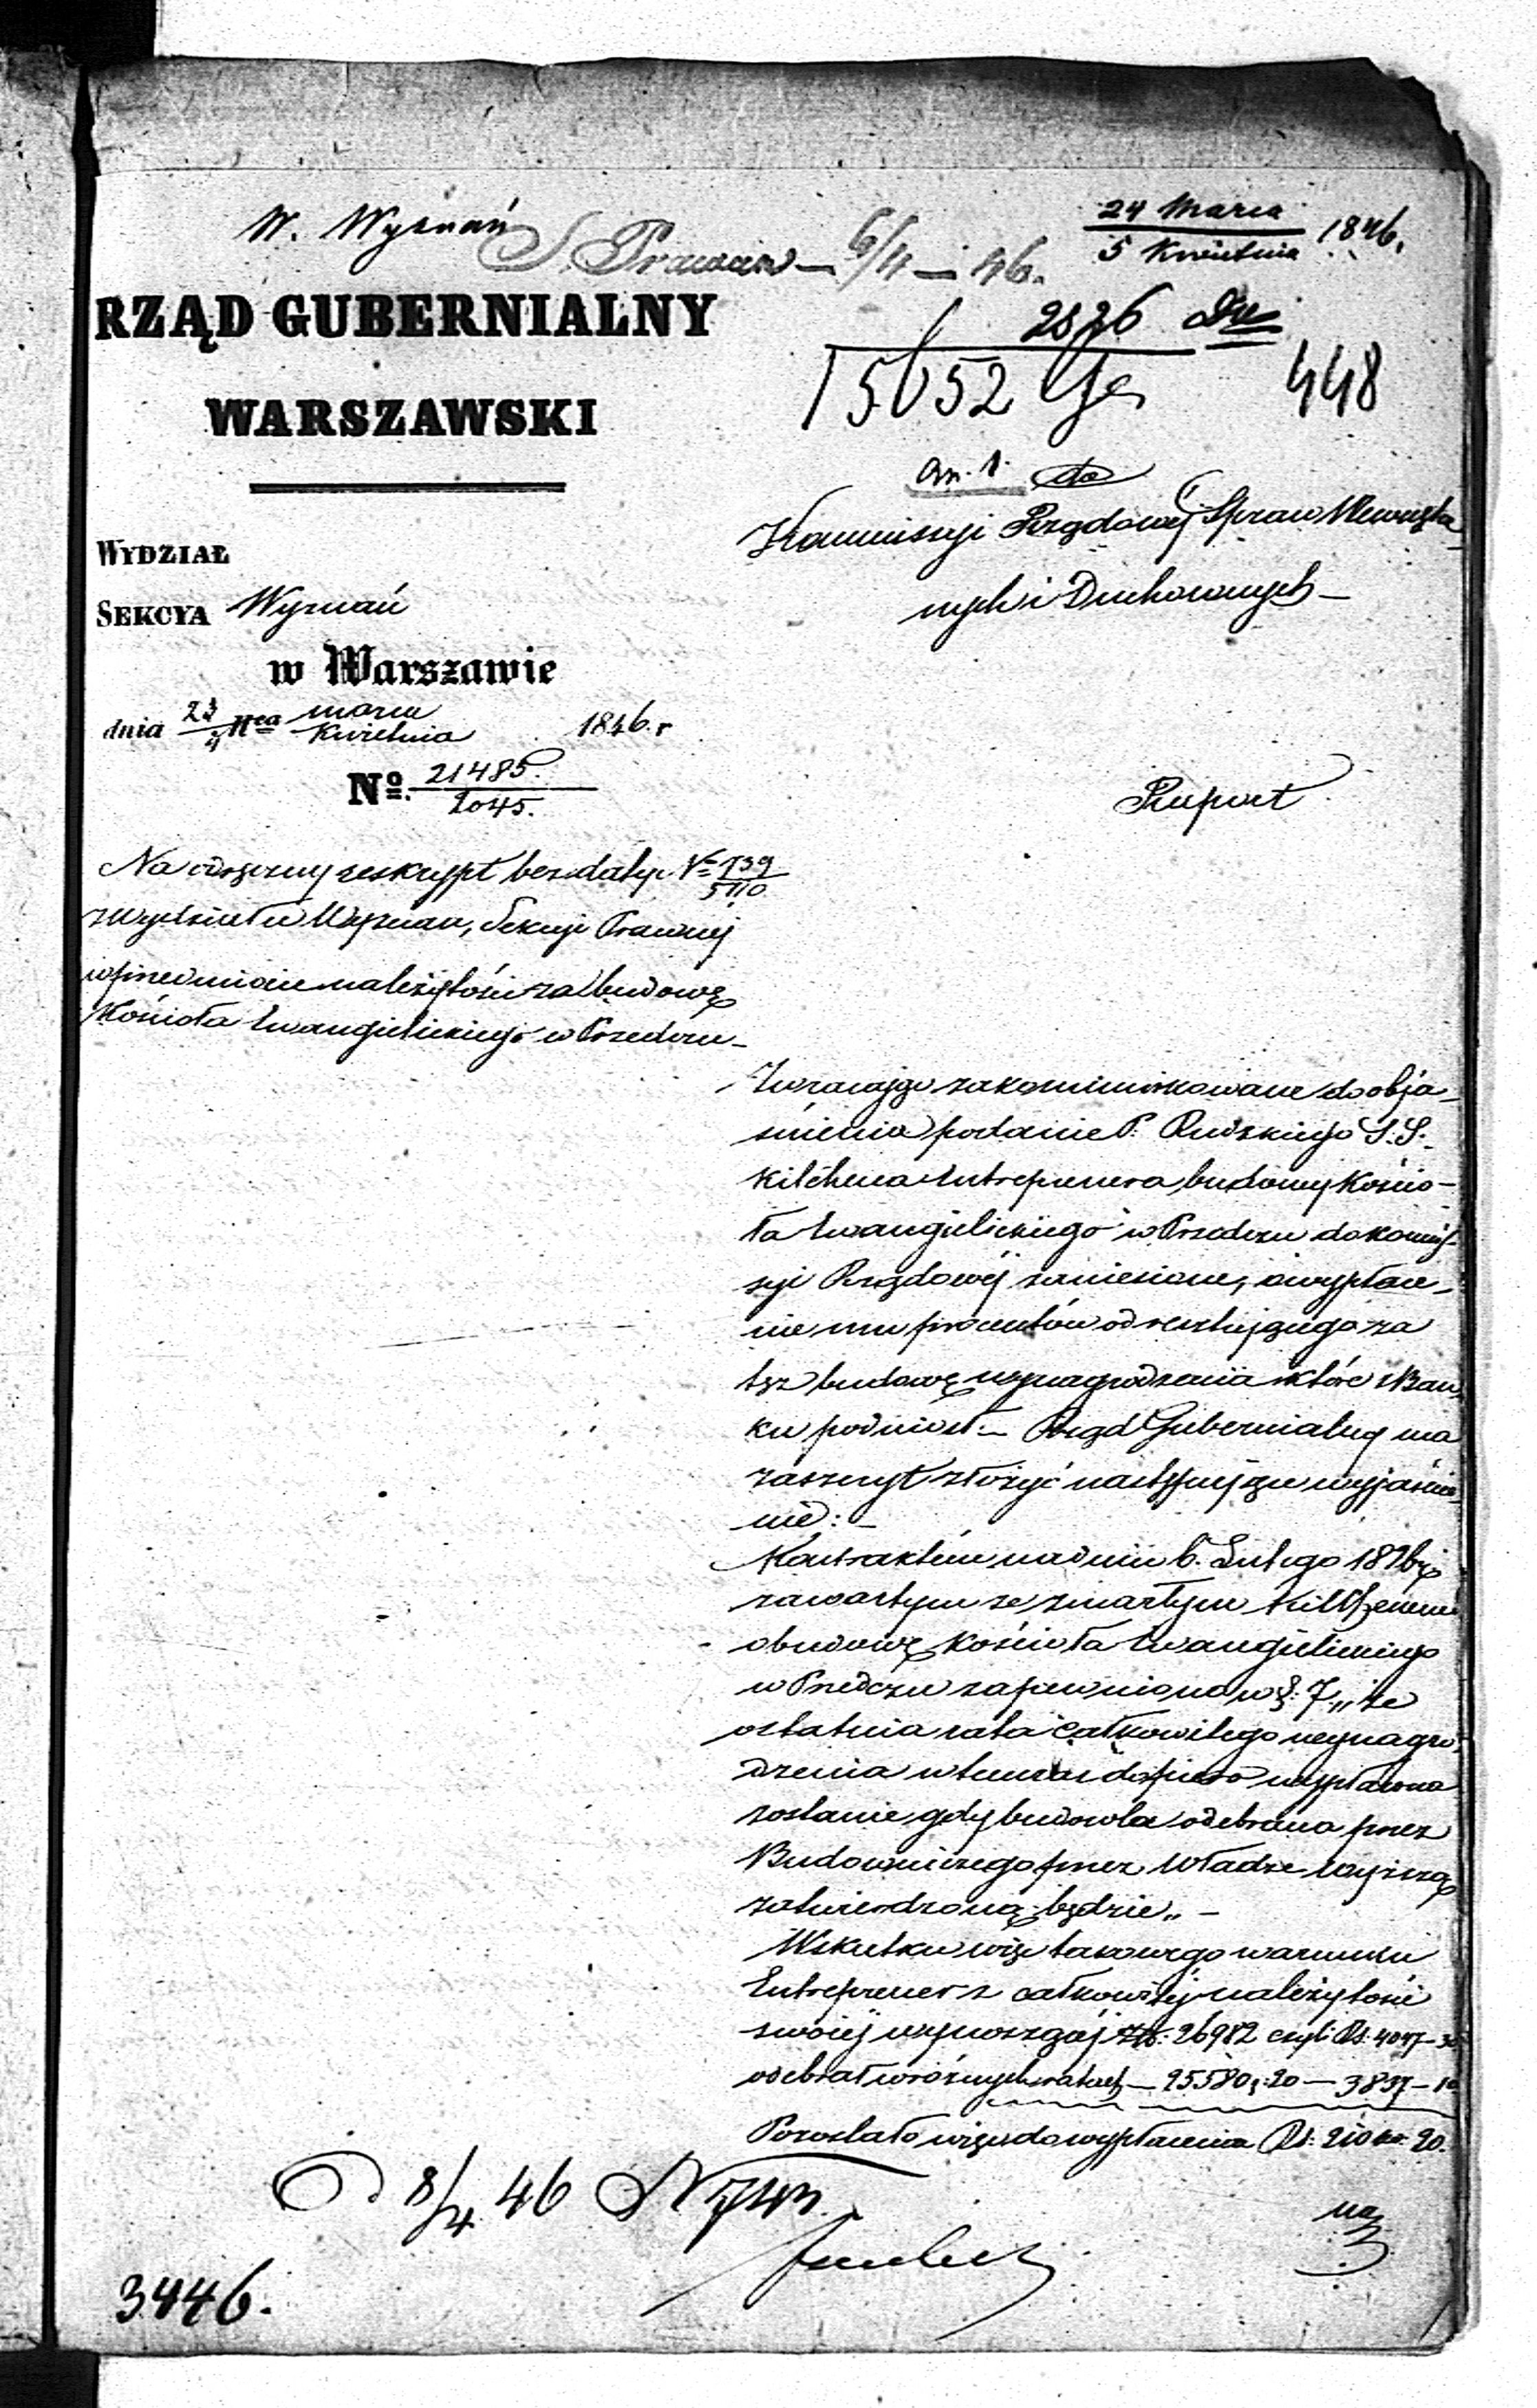 W. Wyznań
S. Prawna — 6/4 — 46.
24 Marca
5 Kwietnia 1846.
RZĄD GUBERNIALNY
WARSZAWSKI
2826
15652
448
An. 1. do
Kommissyi Rządowéj Spraw Wewnętrz-
nych i Duchownych —
WYDZIAŁ
SEKCYA Wyznań
w Warszawie
dnia 23/4 Mca marca / Kwietnia 1846. r
No. 21485. / 2045.
Raport
Na odezwny reskrypt bez daty No 739 / 5110
z Wydziału Wyznań, Sekcyi Prawnéj
w przedmiocie należytości za budowę
Kościoła Ewangielickiego w Przedczu —
Zwracając zakommunikowane do obja-
śnienia podanie P. Rudzkiego S. S.
Kiltchena Entreprenera budowy Kościo-
ła Ewangielickiego w Przedczu do Kommis-
syi Rządowéj zaniesione, o wypłace-
nie mu procentów od resztującego za
tęż budowę wynagrodzenia które z Ban-
ku podniósł — Rząd Gubernialny ma
zaszczyt złożyć następujące wyjaśnie-
nie: —
Kontraktem na dniu 6. Lutego
zawartym ze zmarłym
o budowę Kościoła Ewangielickiego
w Przedczu zapewniono w §: 7 „ że
ostatnia rata całkowitego wynagro-
dzenia w tenczas dopiero wypłacona
zostanie gdy budowla odebrana przez
Budowniczego przez Władze wyższą
zatwierdzoną będzie „ —
W skutku więc takowego warunku
Entreprener z całkowitéj należytości
swojéj wynoszącéj Złp: 26982 czyli Rs: 4047 – 30
odebrał w różnych ratach — 25580 g: 20 — 3837 – 10
Pozostało więc do wypłacenia Rs: 210 ko: 20.
na
D 8/4 46 N 743.
3446.